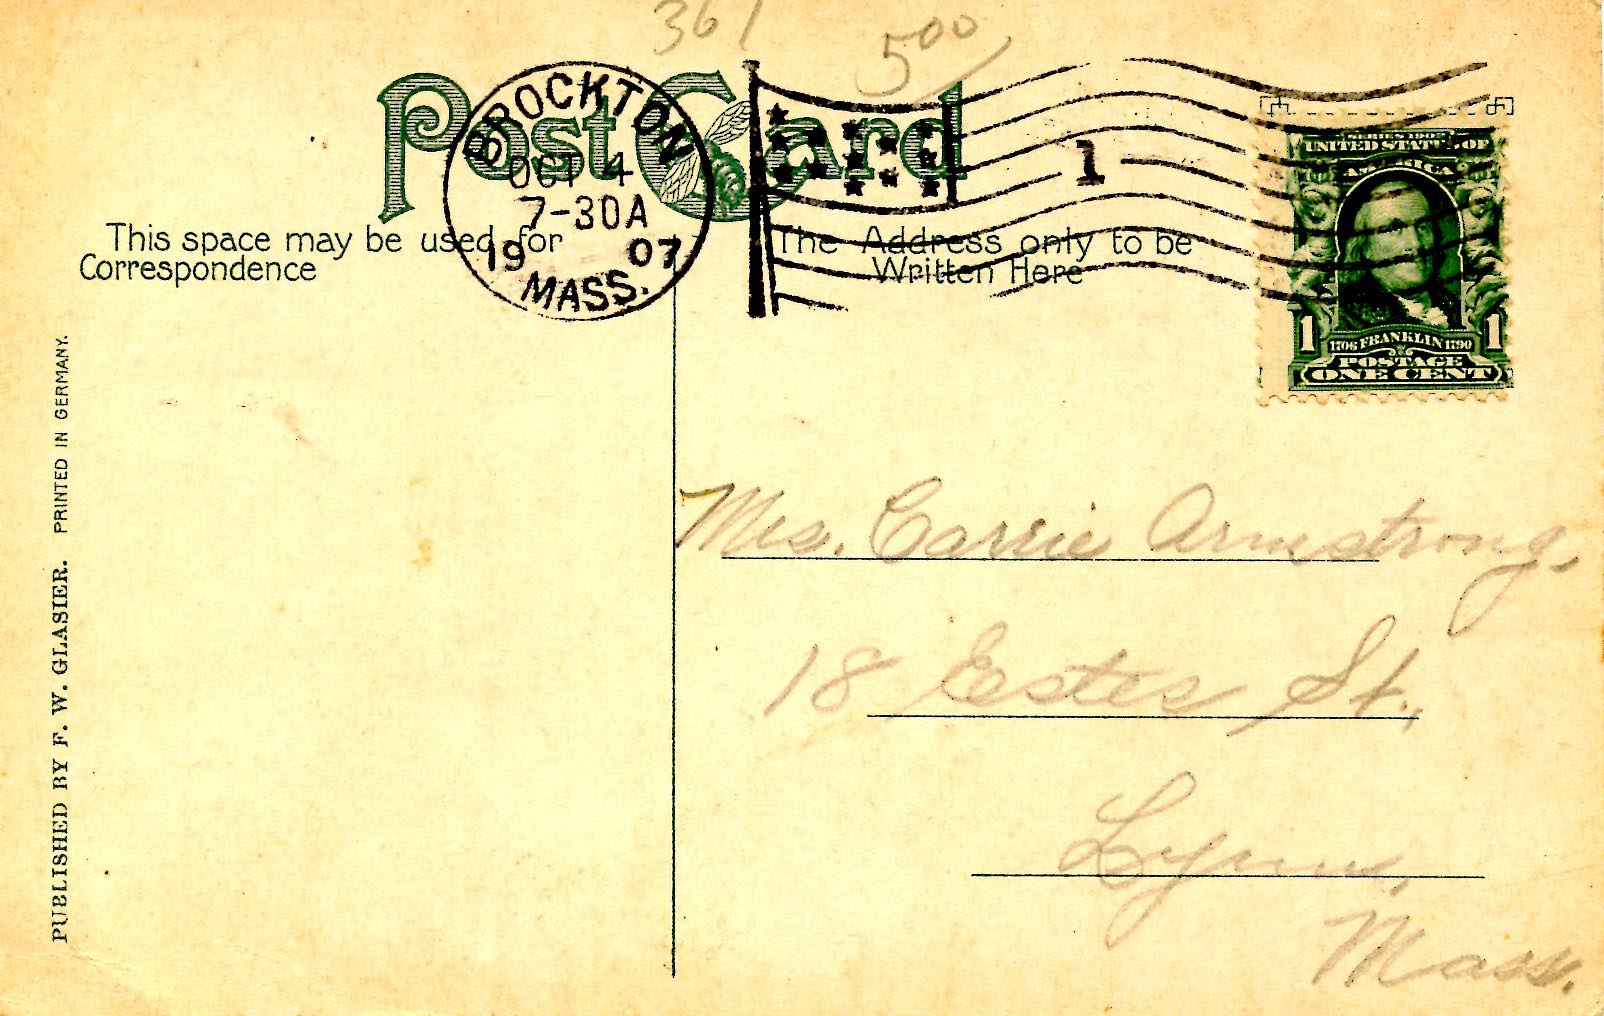 361
5 00
Post Card
BROCKTON
OCT 4
7-30A
19 07
MASS.
1
This space may be used for
Correspondence
The Address only to be
Written Here
SERIES 1902
UNITED STATES OF
AMERICA
1 1706 FRANKLIN 1790 1
POSTAGE
ONE CENT
Mrs. Carrie Armstrong,
18 Estes St.,
Lynn,
Mass.
PUBLISHED BY F. W. GLASIER. PRINTED IN GERMANY.